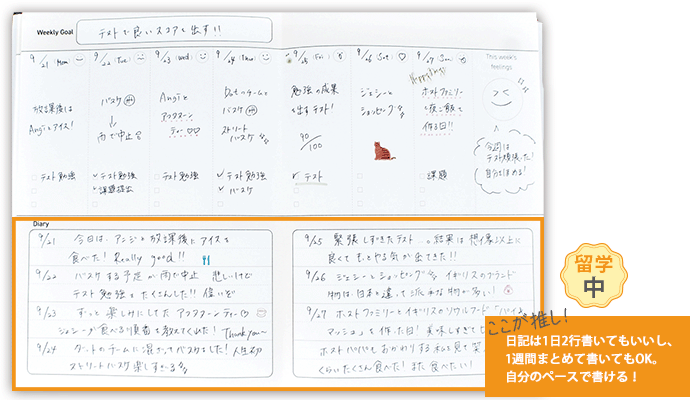 Weekly Goal
テストで良いスコアを出す!!
9/21 (Mon)
9/22 (Tue)
9/23 (Wed)
9/24 (Thu)
9/25 (Fri)
9/26 (Sat)
9/27 (Sun)
This week's
feelings
放課後は
Angiとアイス!
バスケ
雨で中止
Angiと
アフタヌーン
ティー♡♡
Dotのチームと
バスケ
ストリート
バスケ
勉強の成果
を出すテスト!
90/100
ジェシーと
ショッピング
ホストファミリー
と夜ご飯を
作る日!!
今週は
テスト頑張った!
自分をほめる!
テスト勉強
✓テスト勉強
✓課題提出
テスト勉強
✓テスト勉強
✓バスケ
✓テスト
課題
Diary
9/21 今日は、アンジと放課後にアイスを
食べた! Really good!!
9/22 バスケする予定が雨で中止 悲しいけど
テスト勉強をたくさんした!! 偉いぞ
9/23 ずっと楽しみにしたアフタヌーンティー♡
ジェシーが食べる順番を教えてくれた! Thank you~
9/24 ダットのチームに混ざってバスケをした! 人生初
ストリートバスケ楽しす~る
9/25 緊張しすぎたテスト...。結果は想像以上に
良くてもっとやる気が出てきた!!
9/26 ジェシーとショッピング イギリスのブランド
物は、日本と違って派手な物が多い!
9/27 ホストファミリーとイギリスのソウルフード「パイ&
マッシュ」を作った日! 美味しすぎて
ホストパパもおかわりする私を見て笑
くらいたくさん食べた! また食べたい!
留学
中
ここが推し!
日記は1日2行書いてもいいし、
1週間まとめて書いてもOK。
自分のペースで書ける!